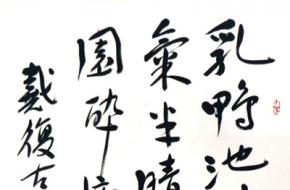 乳鴨池
氣半晴
園醉
戴復古